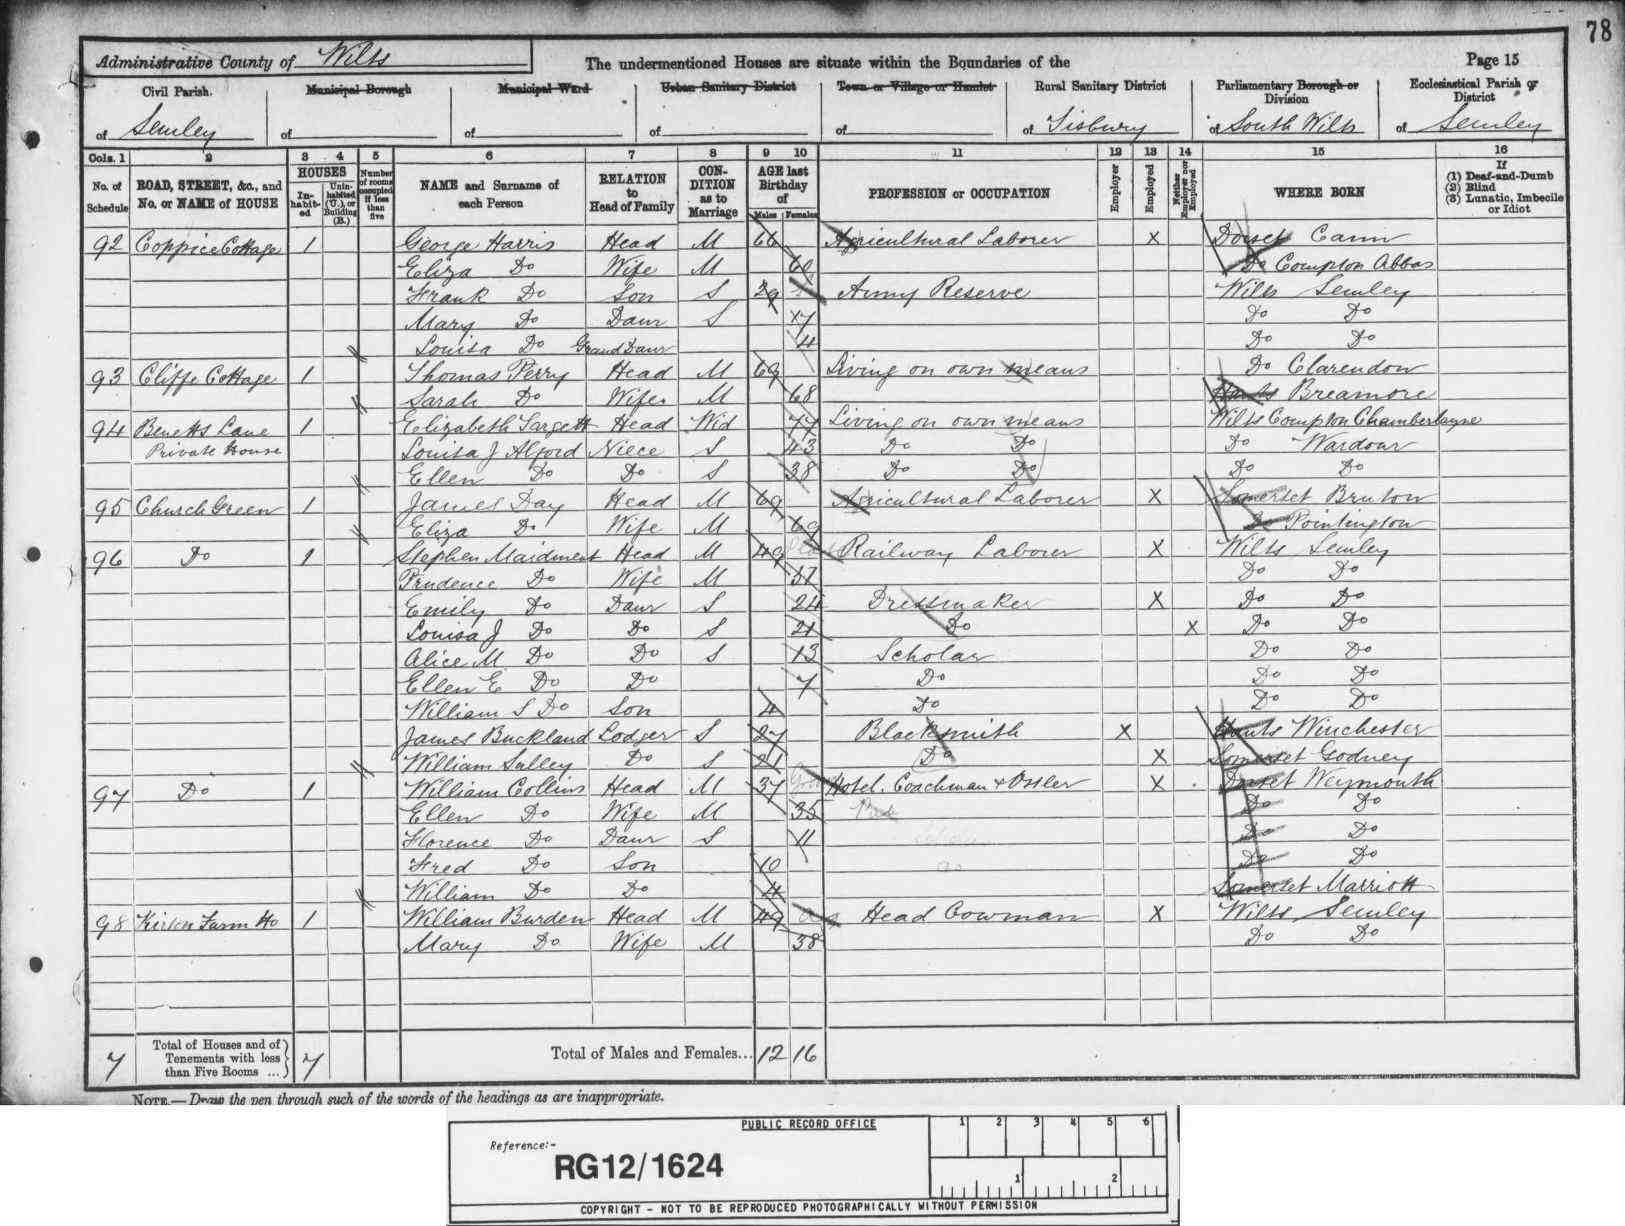 78
Administrative County of Wilts
The undermentioned Houses are situate within the Boundaries of the
Page 15
Civil Parish. of Semley
Municipal Borough of
Municipal Ward of
Urban Sanitary District of
Town or Village or Hamlet of
Rural Sanitary District of Tisbury
Parliamentary Borough or Division of South Wilts
Ecclesiastical Parish or District of Semley
Cols. 1 2 3 4 5 6 7 8 9 10 11 12 13 14 15 16
No. of Schedule
ROAD, STREET, &c., and No. or NAME of HOUSE
HOUSES
In-habit-ed
Unin-habited (U.), or Building (B.)
Number of rooms occupied if less than five
NAME and Surname of each Person
RELATION to Head of Family
CON-DITION as to Marriage
AGE last Birthday of
Males Females
PROFESSION or OCCUPATION
Employer
Employed
Neither Employer nor Employed
WHERE BORN
If
(1) Deaf-and-Dumb
(2) Blind
(3) Lunatic, Imbecile or Idiot
92 Coppice Cottage 1 George Harris Head M 66 Agricultural Laborer X Dorset Cann
Eliza Do Wife M 60 Do Compton Abbas
Frank Do Son S 29 Army Reserve Wilts Semley
Mary Do Daur S 17 Do Do
Louisa Do Grand Daur 4 Do Do
93 Cliffe Cottage 1 Thomas Perry Head M 69 Living on own means Do Clarendon
Sarah Do Wife M 68 Hants Breamore
94 Benetts Lane 1 Elizabeth Targett Head Wid 77 Living on own means Wilts Compton Chamberlayne
Private House Louisa J Alford Niece S 43 Do Do Do Wardour
Ellen Do Do S 38 Do Do Do Do
95 Church Green 1 James Day Head M 69 Agricultural Laborer X Somerset Bruton
Eliza Do Wife M 69 Do Pointington
96 Do 1 Stephen Maidment Head M 49 Railway Laborer X Wilts Semley
Prudence Do Wife M 51 Do Do
Emily Do Daur S 24 Dressmaker X Do Do
Louisa J Do Do S 21 Do X Do Do
Alice M Do Do S 13 Scholar Do Do
Ellen E Do Do 7 Do Do Do
William S Do Son 4 Do Do Do
James Buckland Lodger S 27 Blacksmith X Hants Winchester
William Sulley Do S 21 Do X Somerset Godney
97 Do 1 William Collins Head M 37 Hotel. Coachman & Ostler X Dorset Weymouth
Ellen Do Wife M 35 Do Do
Florence Do Daur S 11 Do Do
Fred Do Son 10 Do Do
William Do Do 4 Somerset Marriott
98 Farm Ho 1 William Burden Head M 49 Head Cowman X Wilts Semley
Mary Do Wife M 38 Do Do
7 Total of Houses and of Tenements with less than Five Rooms ... 7 Total of Males and Females... 12 16
NOTE.—Draw the pen through such of the words of the headings as are inappropriate.
PUBLIC RECORD OFFICE
1 2 3 4 5 6
Reference:-
RG12/1624
1 2
COPYRIGHT - NOT TO BE REPRODUCED PHOTOGRAPHICALLY WITHOUT PERMISSION